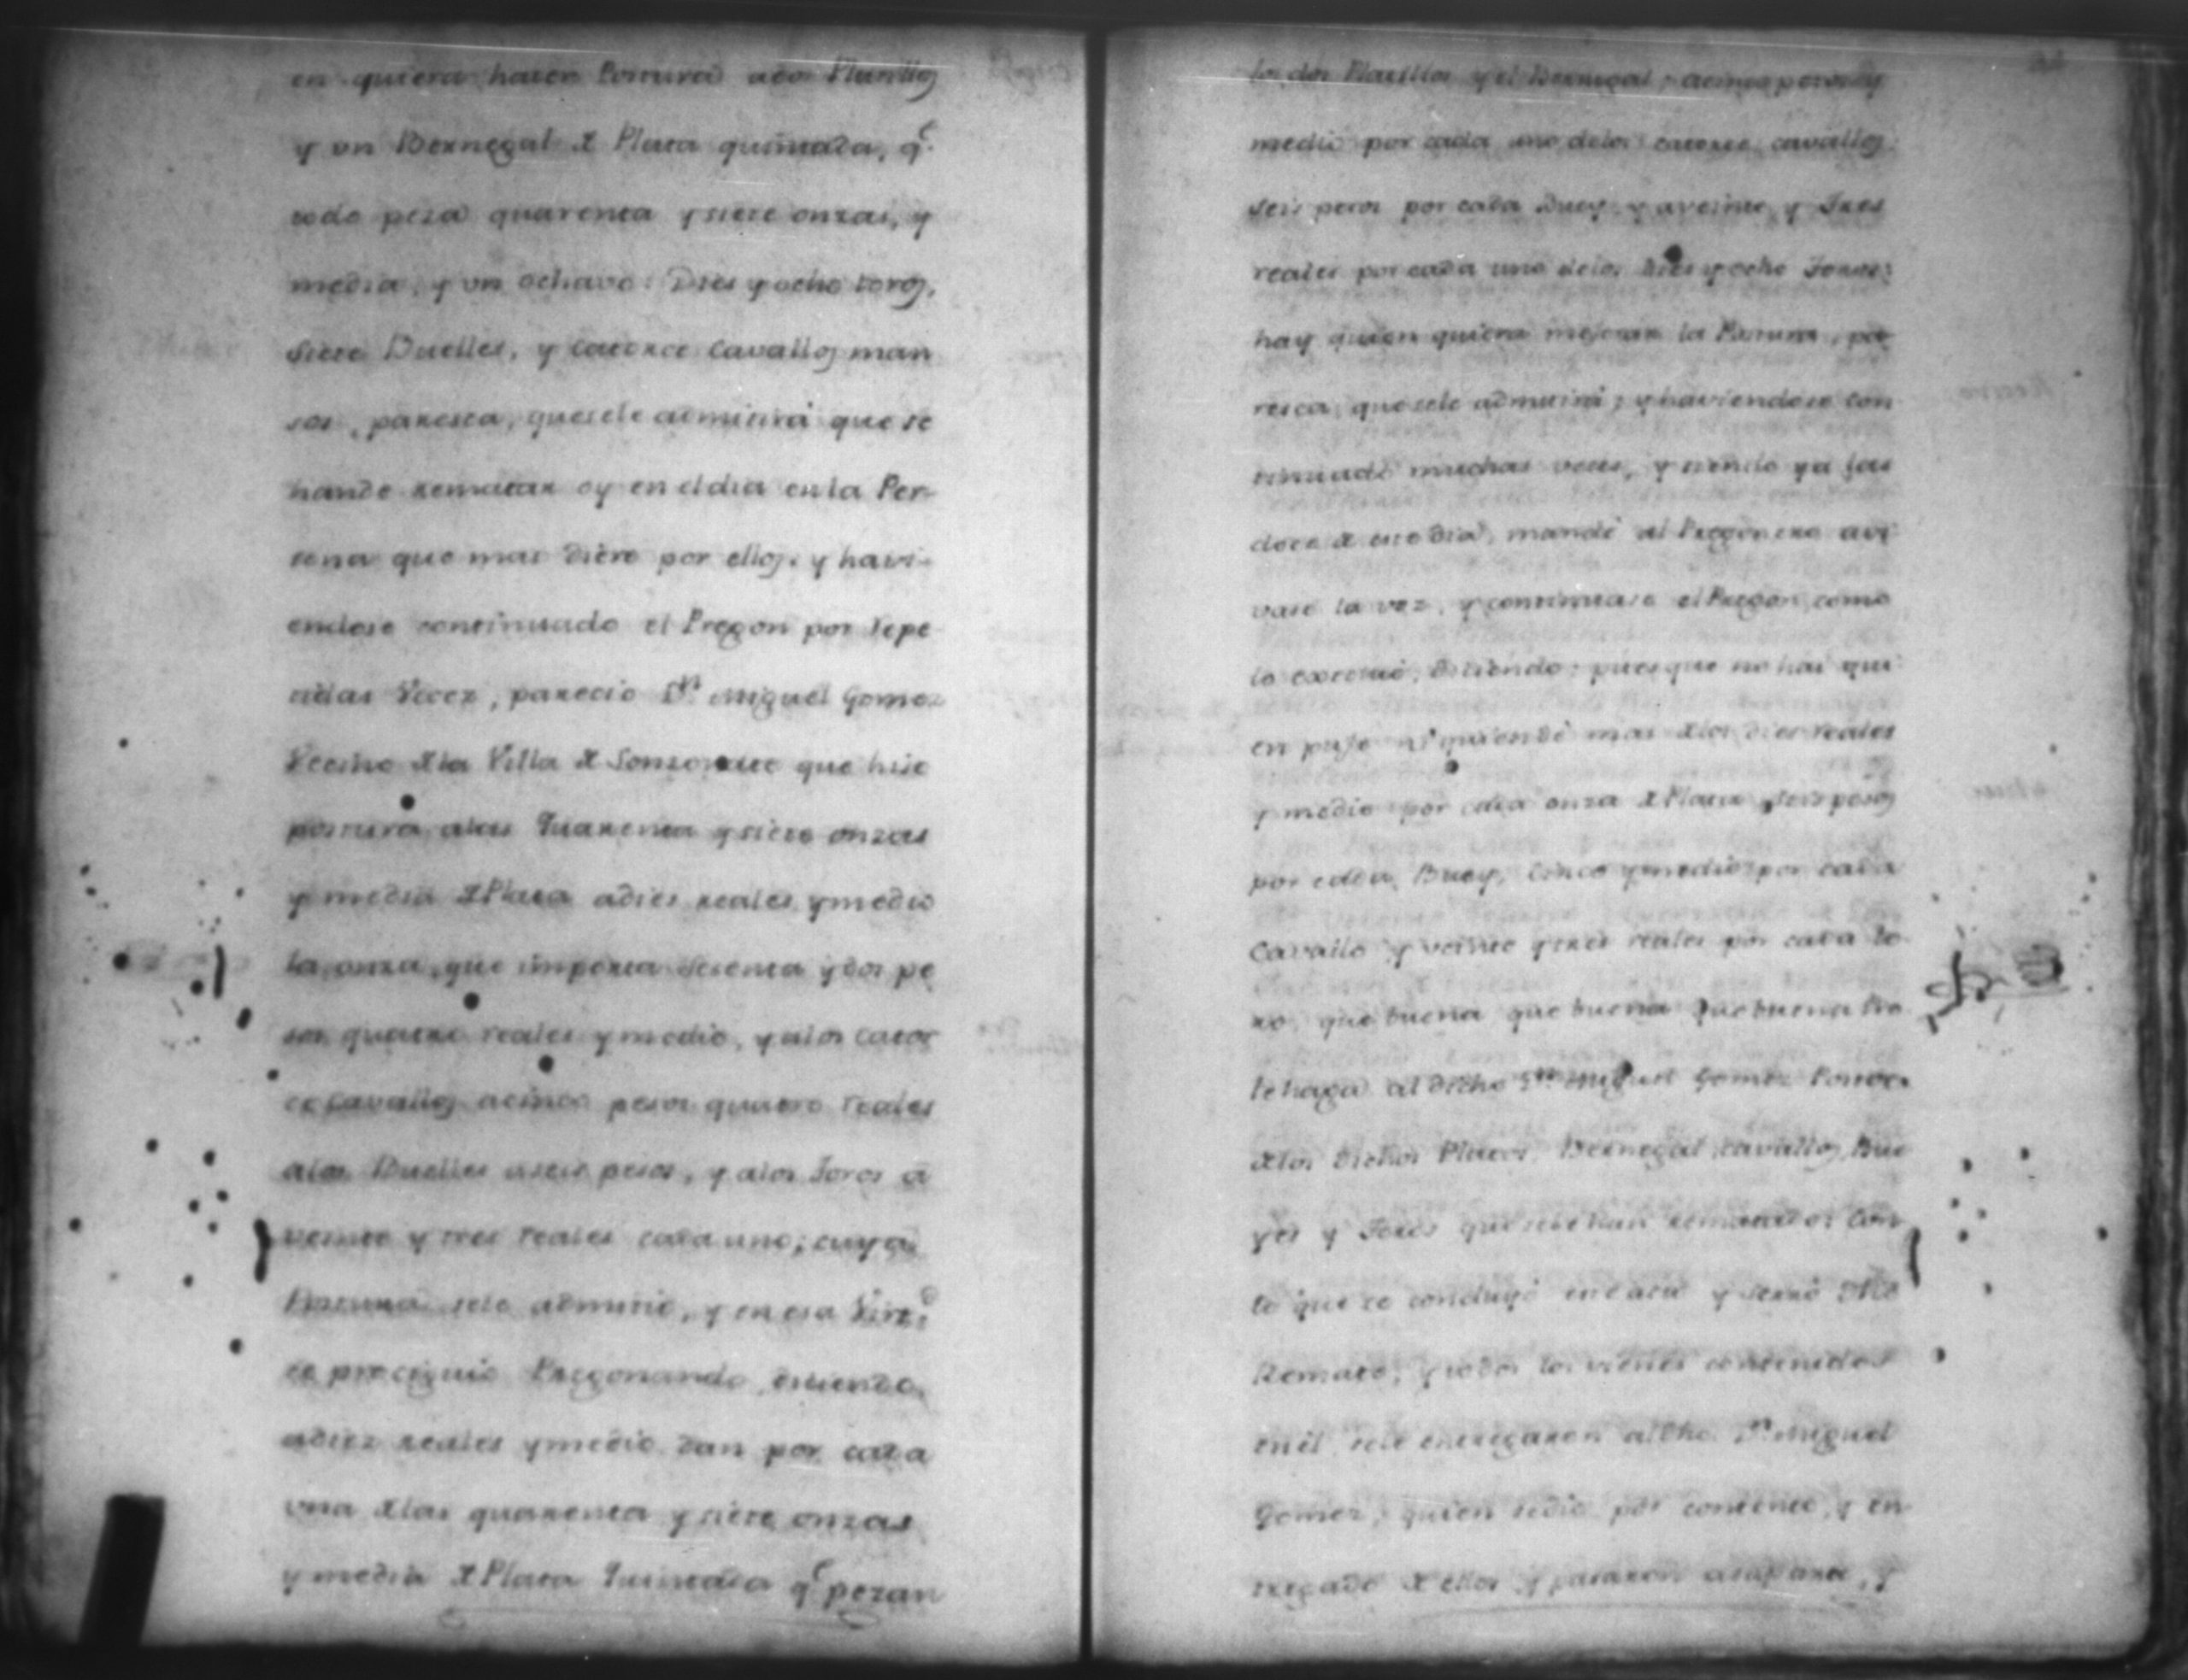 en quiera haser Postura ados Platillos
y un Bernegal de Plata quintada, q.e
todo pesa quarenta y siete onzas, y
media, y un ochavo: Dies y ocho toros,
siete Buelles, y catorce Cavallos man
sos, paresca, quesele admitirá que se
hande rematar oy en el dia enla Per-
sona que mas diere por ellos. y havi-
endose continuado el Pregon por repe
tidas Vecez, parecio Dn. Miguel Gomez
Vecino dela Villa de Sonsonate que hiso
postura alas quarenta y siete onzas
y media de Plata adies reales y medio
la onza, que importa sesenta y dos pe
sos quatro reales y medio, y alos cator
ce Cavallos acinco pesos quatro reales
alos Buelles aseis pesos, y alos Toros a
veinte y tres reales cada uno; cuya
Postura sele admitio, y en esa Virt.d
se prociguio Pregonando, diciendo
adiez reales y medio dan por cada
una delas quarenta y siete onzas
y media de Plata Quintada q.e pezan
los dos Platillos y el Bernegal, acinco pesos y
medio por cada uno delos catorce cavallos
seis pesos por cada Buey y aveinte y Tres
reales por cada uno delos dies y ocho Toros:
hay quien quiera mejorar la Postura, pa
resca, que sele admitirá; y haviendose con
tinuado muchas veces, y siendo ya las
doce de este dia, mandé al Pregonero avi
vase la voz, y continuase el Pregon, como
lo executó, diciendo: pues que no hai qui
en puje ni quien dé mas delos dies reales
y medio por cada onza de Plata, seis pesos
por cada Buey, Cinco y medio por cada
Cavallo y veinte y tres reales por cada to
ro, que buena que buena que buena Pro
le haga al dicho Dn. Miguel Gomez Postor
delos dichos Platos, Bernegal, cavallos, Bue
yes y Toros que sele han rematado: Con
lo que se concluyó y serró dho
Remate; y todos los vienes contenidos
en él, sele entregaron al dho. Dn. Miguel
Gomez, quien sedio por contento, y en
tregado de ellos y pasaron asu parte, y